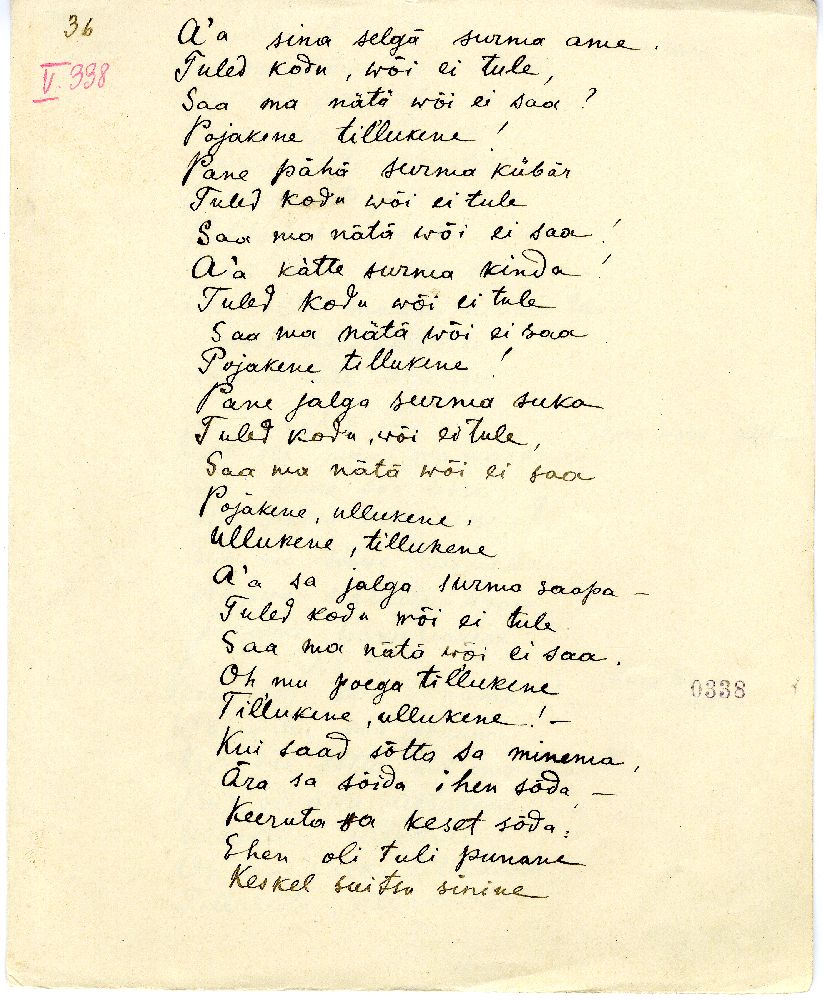 36
V. 338
A'a sina selgä surma ame.
Tuled kodu, wõi ei tule,
Saa ma nätä wõi ei saa?
Pojakene tillukene!
Pane pähä surma kübär
Tuled kodu wõi ei tule
Saa ma nätä wõi ei saa!
A'a kätte surma kinda!
Tuled kodu wõi ei tule
Saa ma nätä wõi ei saa
Pojakene tillukene!
Pane jalga surma suka
Tuled kodu, wõi ei tule,
Saa ma nätä wõi ei saa
Pojakene, ullukene,
Ullukene, tillukene
A'a sa jalga surma saapa —
Tuled kodu wõi ei tule
Saa ma nätä wõi ei saa.
Oh mu poega tillukene
0338
Tillukene, ullukene! —
Kui saad sõtta sa minema,
Ära sa sõida ihen sõda —
Keeruta sa keset sõda:
Ehen oli tuli punane
Keskel suitsu sinine